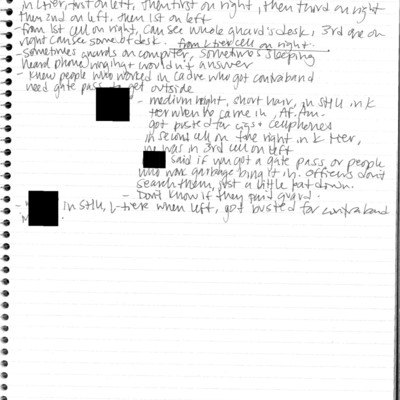 in L tier, first on left, then first on right, then third on right
then 2nd on left, then 1st on left
- from 1st cell on right, can see whole guard's desk, 3rd one on
right can see some of desk. from L tier cell on right.
- sometimes guards on computer, sometimes sleeping
heard phone ringing + wouldn't answer
- knew people who worked in cadre who got contraband
need gate pass to get outside
- medium height, short hair, in SHU in K
tier when he came in, Af. Am.
got busted for cigs + cellphones
in second cell on the right in K tier,
was in 3rd cell on left
said if you got a gate pass or people
who work garbage bring it in. Officers don't
search them, just a little pat down.
- Don't know if they paid guard.
- in SHU, L-tier when left, got busted for contraband